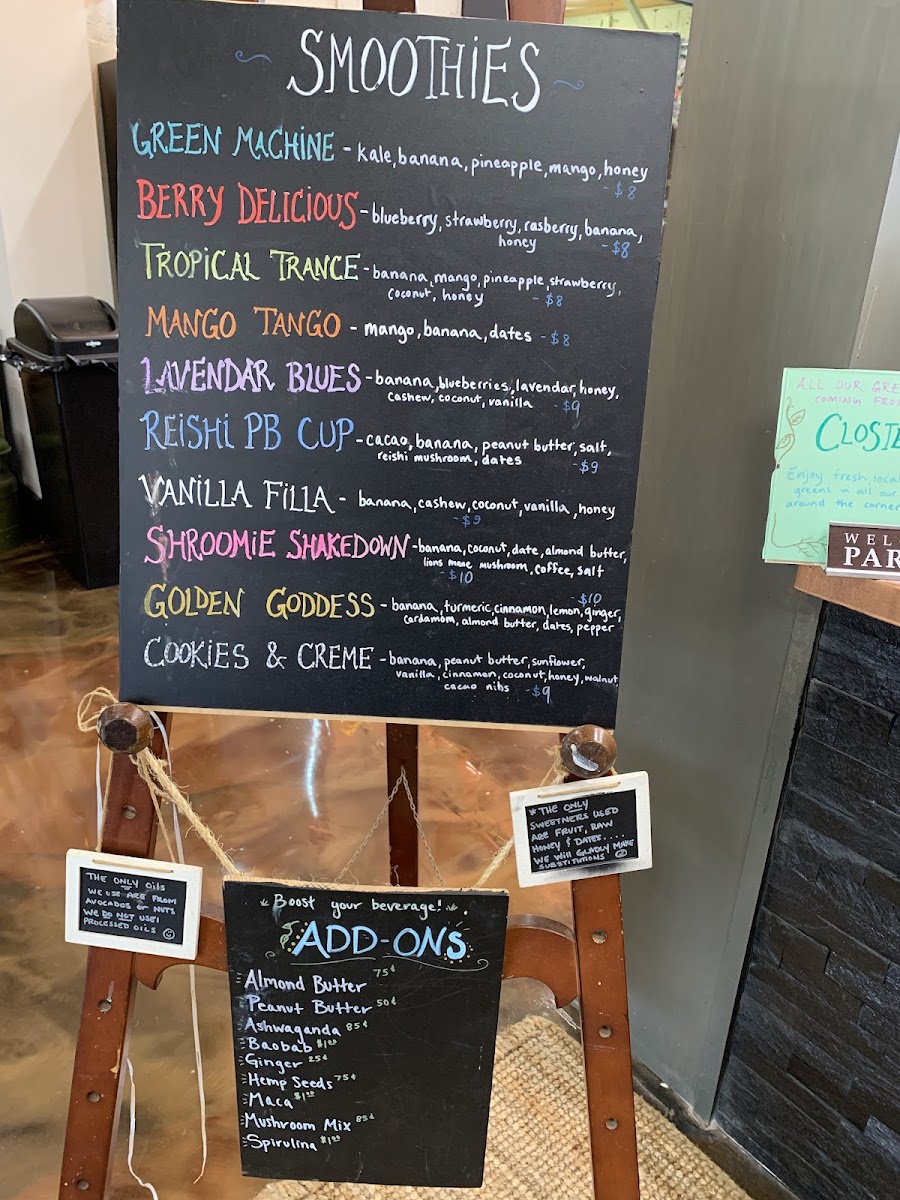 SMOOTHIES
GREEN MACHINE - kale, banana, pineapple, mango, honey
- $8
BERRY DELICIOUS - blueberry, strawberry, rasberry, banana,
honey - $8
TROPICAL TRANCE - banana, mango, pineapple, strawberry,
coconut, honey - $8
MANGO TANGO - mango, banana, dates - $8
LAVENDAR BLUES - banana, blueberries, lavendar, honey,
cashew, coconut, vanilla - $9
REISHI PB CUP - cacao, banana, peanut butter, salt,
reishi mushroom, dates - $9
VANILLA FILLA - banana, cashew, coconut, vanilla, honey
- $9
SHROOMIE SHAKEDOWN - banana, coconut, date, almond butter,
lions mane mushroom, coffee, salt
- $10
- $10
GOLDEN GODDESS - banana, turmeric, cinnamon, lemon, ginger,
cardamom, almond butter, dates, pepper
COOKIES & CREME - banana, peanut butter, sunflower,
vanilla, cinnamon, coconut, honey, walnut
cacao nibs - $9
ALL OUR GRE
COMING FRO
CLOSTE
Enjoy fresh, local
greens in all our
around the corner
WEL
PAR
* THE ONLY
SWEETNERS USED
ARE FRUIT, RAW
HONEY & DATES....
WE WILL GLADLY MAKE
SUBSTITUTIONS
THE ONLY OILS
WE USE ARE FROM
AVOCADOS OR NUTS
WE DO NOT USE!
PROCESSED OILS
Boost your beverage!
ADD-ONS
Almond Butter 75¢
Peanut Butter 50¢
Ashwaganda 85¢
Baobab $1.00
Ginger 25¢
Hemp Seeds 75¢
Maca $1.00
Mushroom Mix 85¢
Spirulina